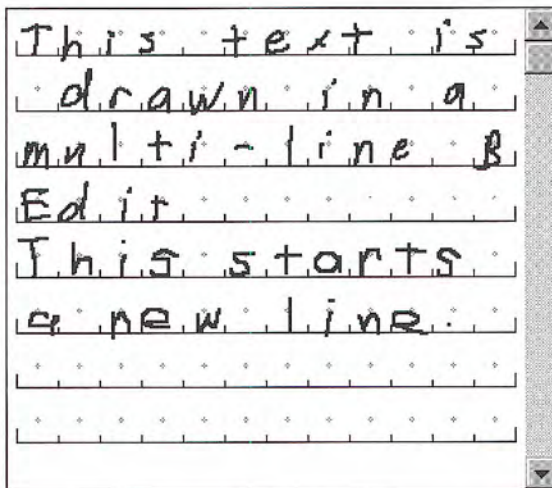 This text is
drawn in a
multi-line B
Edit
This starts
a new line.